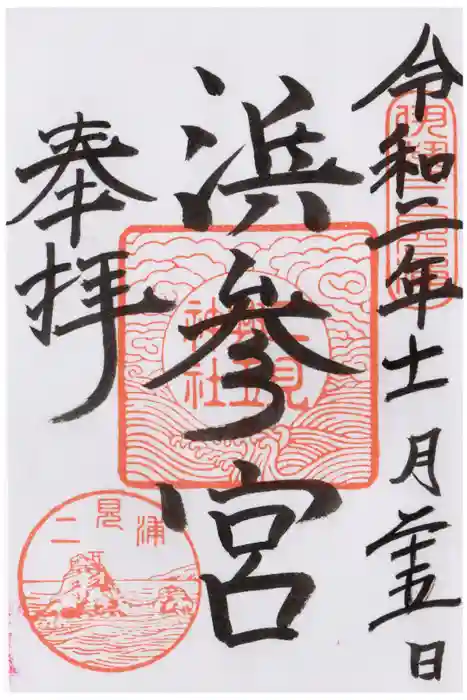 令和二年十一月二十五日
浜参宮
奉拝
二見
興玉
神社
二見浦